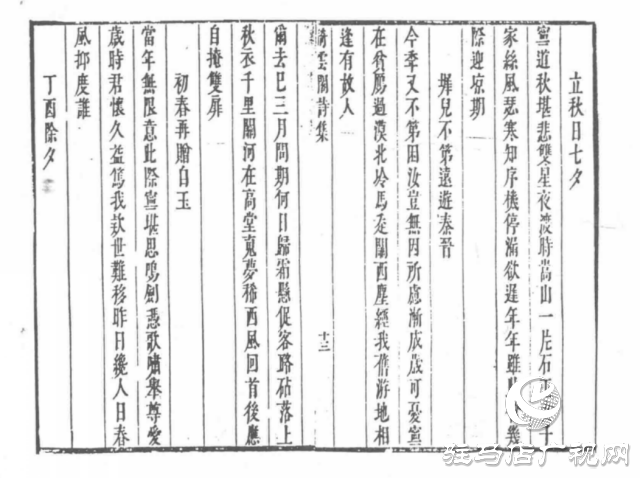 立秋日七夕
寧道秋堪悲雙星夜渡時嵩山一片石千
家絲風瑟寒知序機停漏欲遲年年雖幾
際迎凉期
擇兒不第遠遊秦晉
今季又不第困汝豈無因所慮漸成歲可憂寧
在貧鴈過漠北冷馬走關西塵經我舊游地相
逢有故人
雲閣詩集
十三
爾去已三月問期何日歸霜懸促客路砧落上
秋衣千里關河在高堂寬夢稀西風回首後應
自掩雙扉
初春再贈白玉
當年無限意此際寧堪思鳴劍憑歌嘯舉尊愛
歲時君懷久益篤我欵世難移昨日纔人日春
風抑度誰
丁酉除夕
驻马店广视网